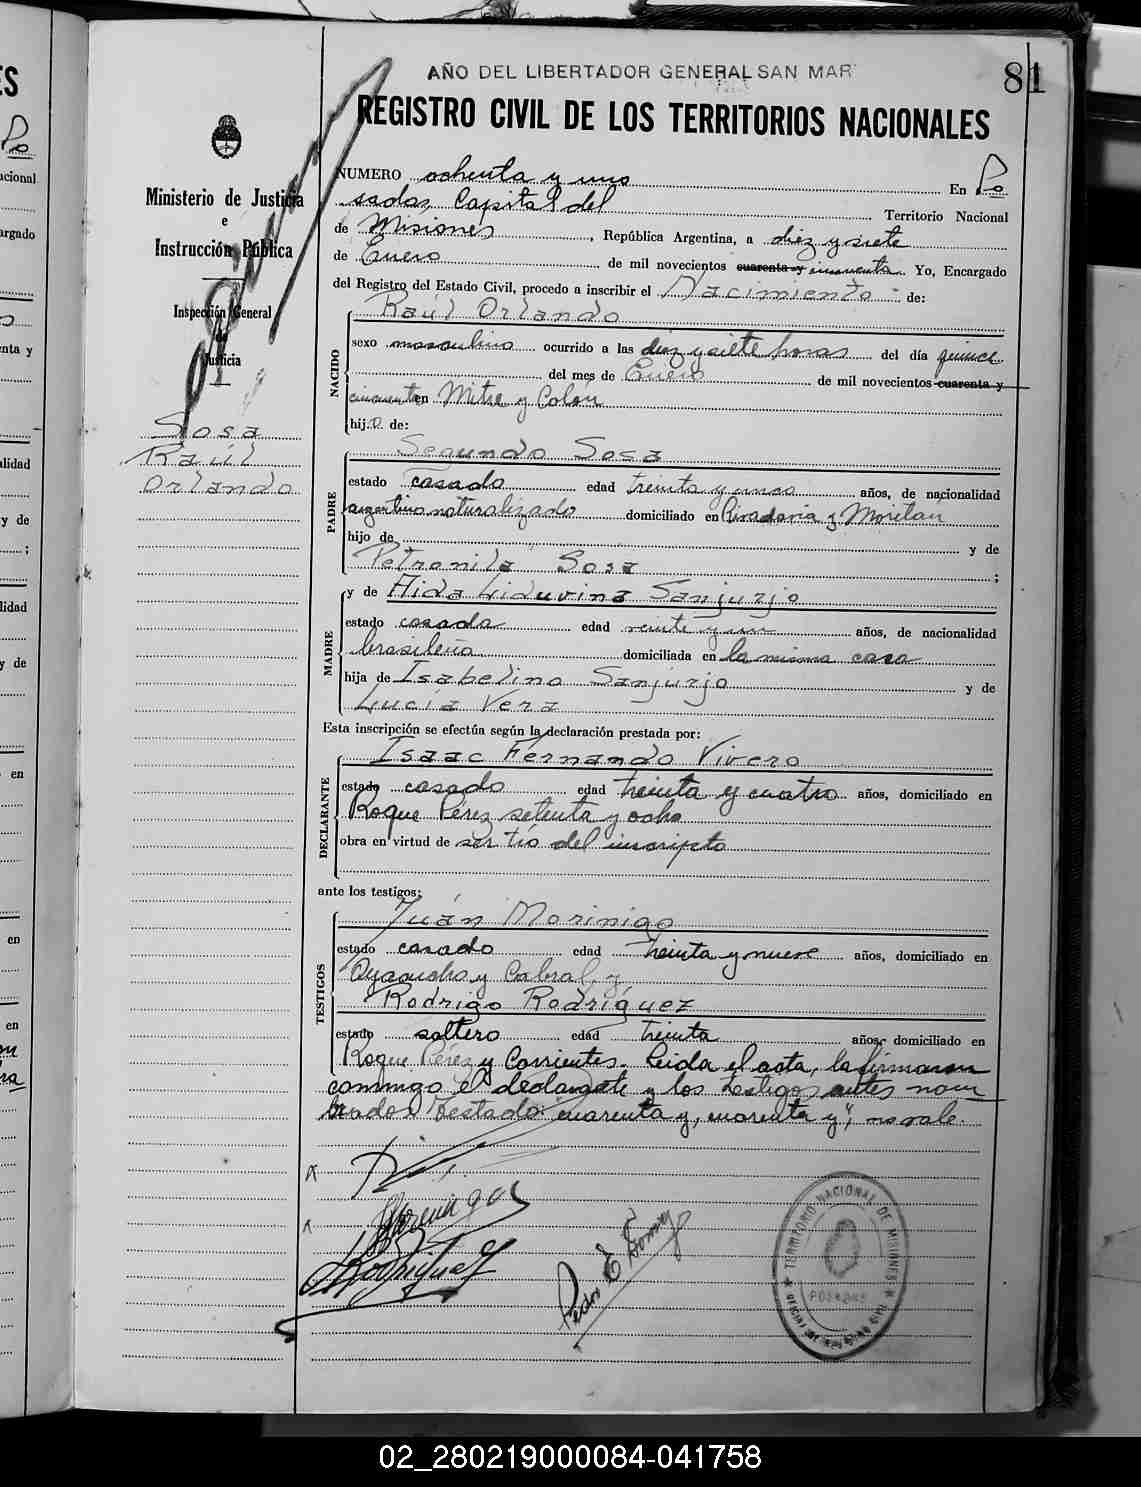 AÑO DEL LIBERTADOR GENERAL SAN MAR
81
REGISTRO CIVIL DE LOS TERRITORIOS NACIONALES
Ministerio de Justicia
e
Instrucción Pública
Inspección General
de
Justicia
Sosa
Raúl
Orlando
NUMERO ochenta y uno En Po
sadas, Capital del Territorio Nacional
de Misiones, República Argentina, a diez y siete
de Enero de mil novecientos cuarenta y cincuenta. Yo, Encargado
del Registro del Estado Civil, procedo a inscribir el Nacimiento de:
NACIDO
Raúl Orlando
sexo masculino ocurrido a las diez y siete horas del día quince
del mes de Enero de mil novecientos cuarenta y
cincuenta en Mitre y Colón
hijo de:
PADRE
Segundo Sosa
estado casado edad treinta y cinco años, de nacionalidad
argentino naturalizado domiciliado en Rivadavia y
hijo de y de
Petronila Sosa ;
MADRE
y de Aida Liduvina Sanjurjo
estado casada edad veinte y un años, de nacionalidad
brasileña domiciliada en la misma casa
hija de Isabelino Sanjurjo y de
Lucía Vera
Esta inscripción se efectúa según la declaración prestada por:
DECLARANTE
Isaac Fernando Vivero
estado casado edad treinta y cuatro años, domiciliado en
Roque Pérez setenta y ocho
obra en virtud de ser tío del inscripto
ante los testigos:
TESTIGOS
Juán Morinigo
estado casado edad treinta y nueve años, domiciliado en
Ayacucho y Cabral y
Rodrigo Rodríguez
estado soltero edad treinta años, domiciliado en
Roque Pérez y Corrientes. Leida el acta, la firmaron
conmigo el declarante y los testigos antes nom
brados. Testado: "cuarenta y, cuarenta y"; no vale.
Rodriguez
Pedro E
TERRITORIO NACIONAL DE MISIONES
POSADAS
02_280219000084-041758